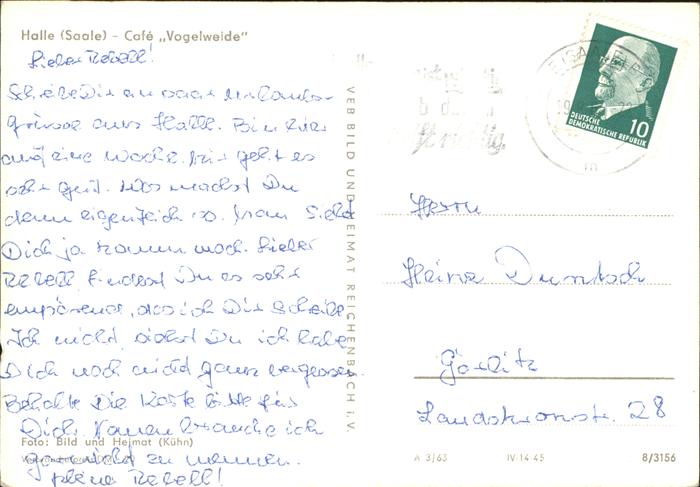 Halle (Saale) - Café „Vogelweide"
Lieber Rebell!
Schicke Dir ein paar Urlaubs-
grüsse aus Halle. Bin hier
auf eine Woche. Mir geht es
sehr gut. Was machst Du
denn eigentlich so. Man sieht
Dich ja kaum noch. Lieber
Rebell findest Du es sehr
empörend, das ich Dir schreibe.
Ich nicht, siehst Du ich habe
Dich noch nicht ganz vergessen.
Behalte Die Karte bitte für
Dich. Namen brauche ich
Foto: Bild und Heimat (Kühn)
ja nicht zu nennen.
Kleine Rebell!
VEB BILD UND HEIMAT REICHENBACH i. V.
DEUTSCHE
DEMOKRATISCHE REPUBLIK
10
richtig
m
Herrn
Heinz
Görlitz
Landskronstr. 28
A 3/63 IV-14-45 8/3156